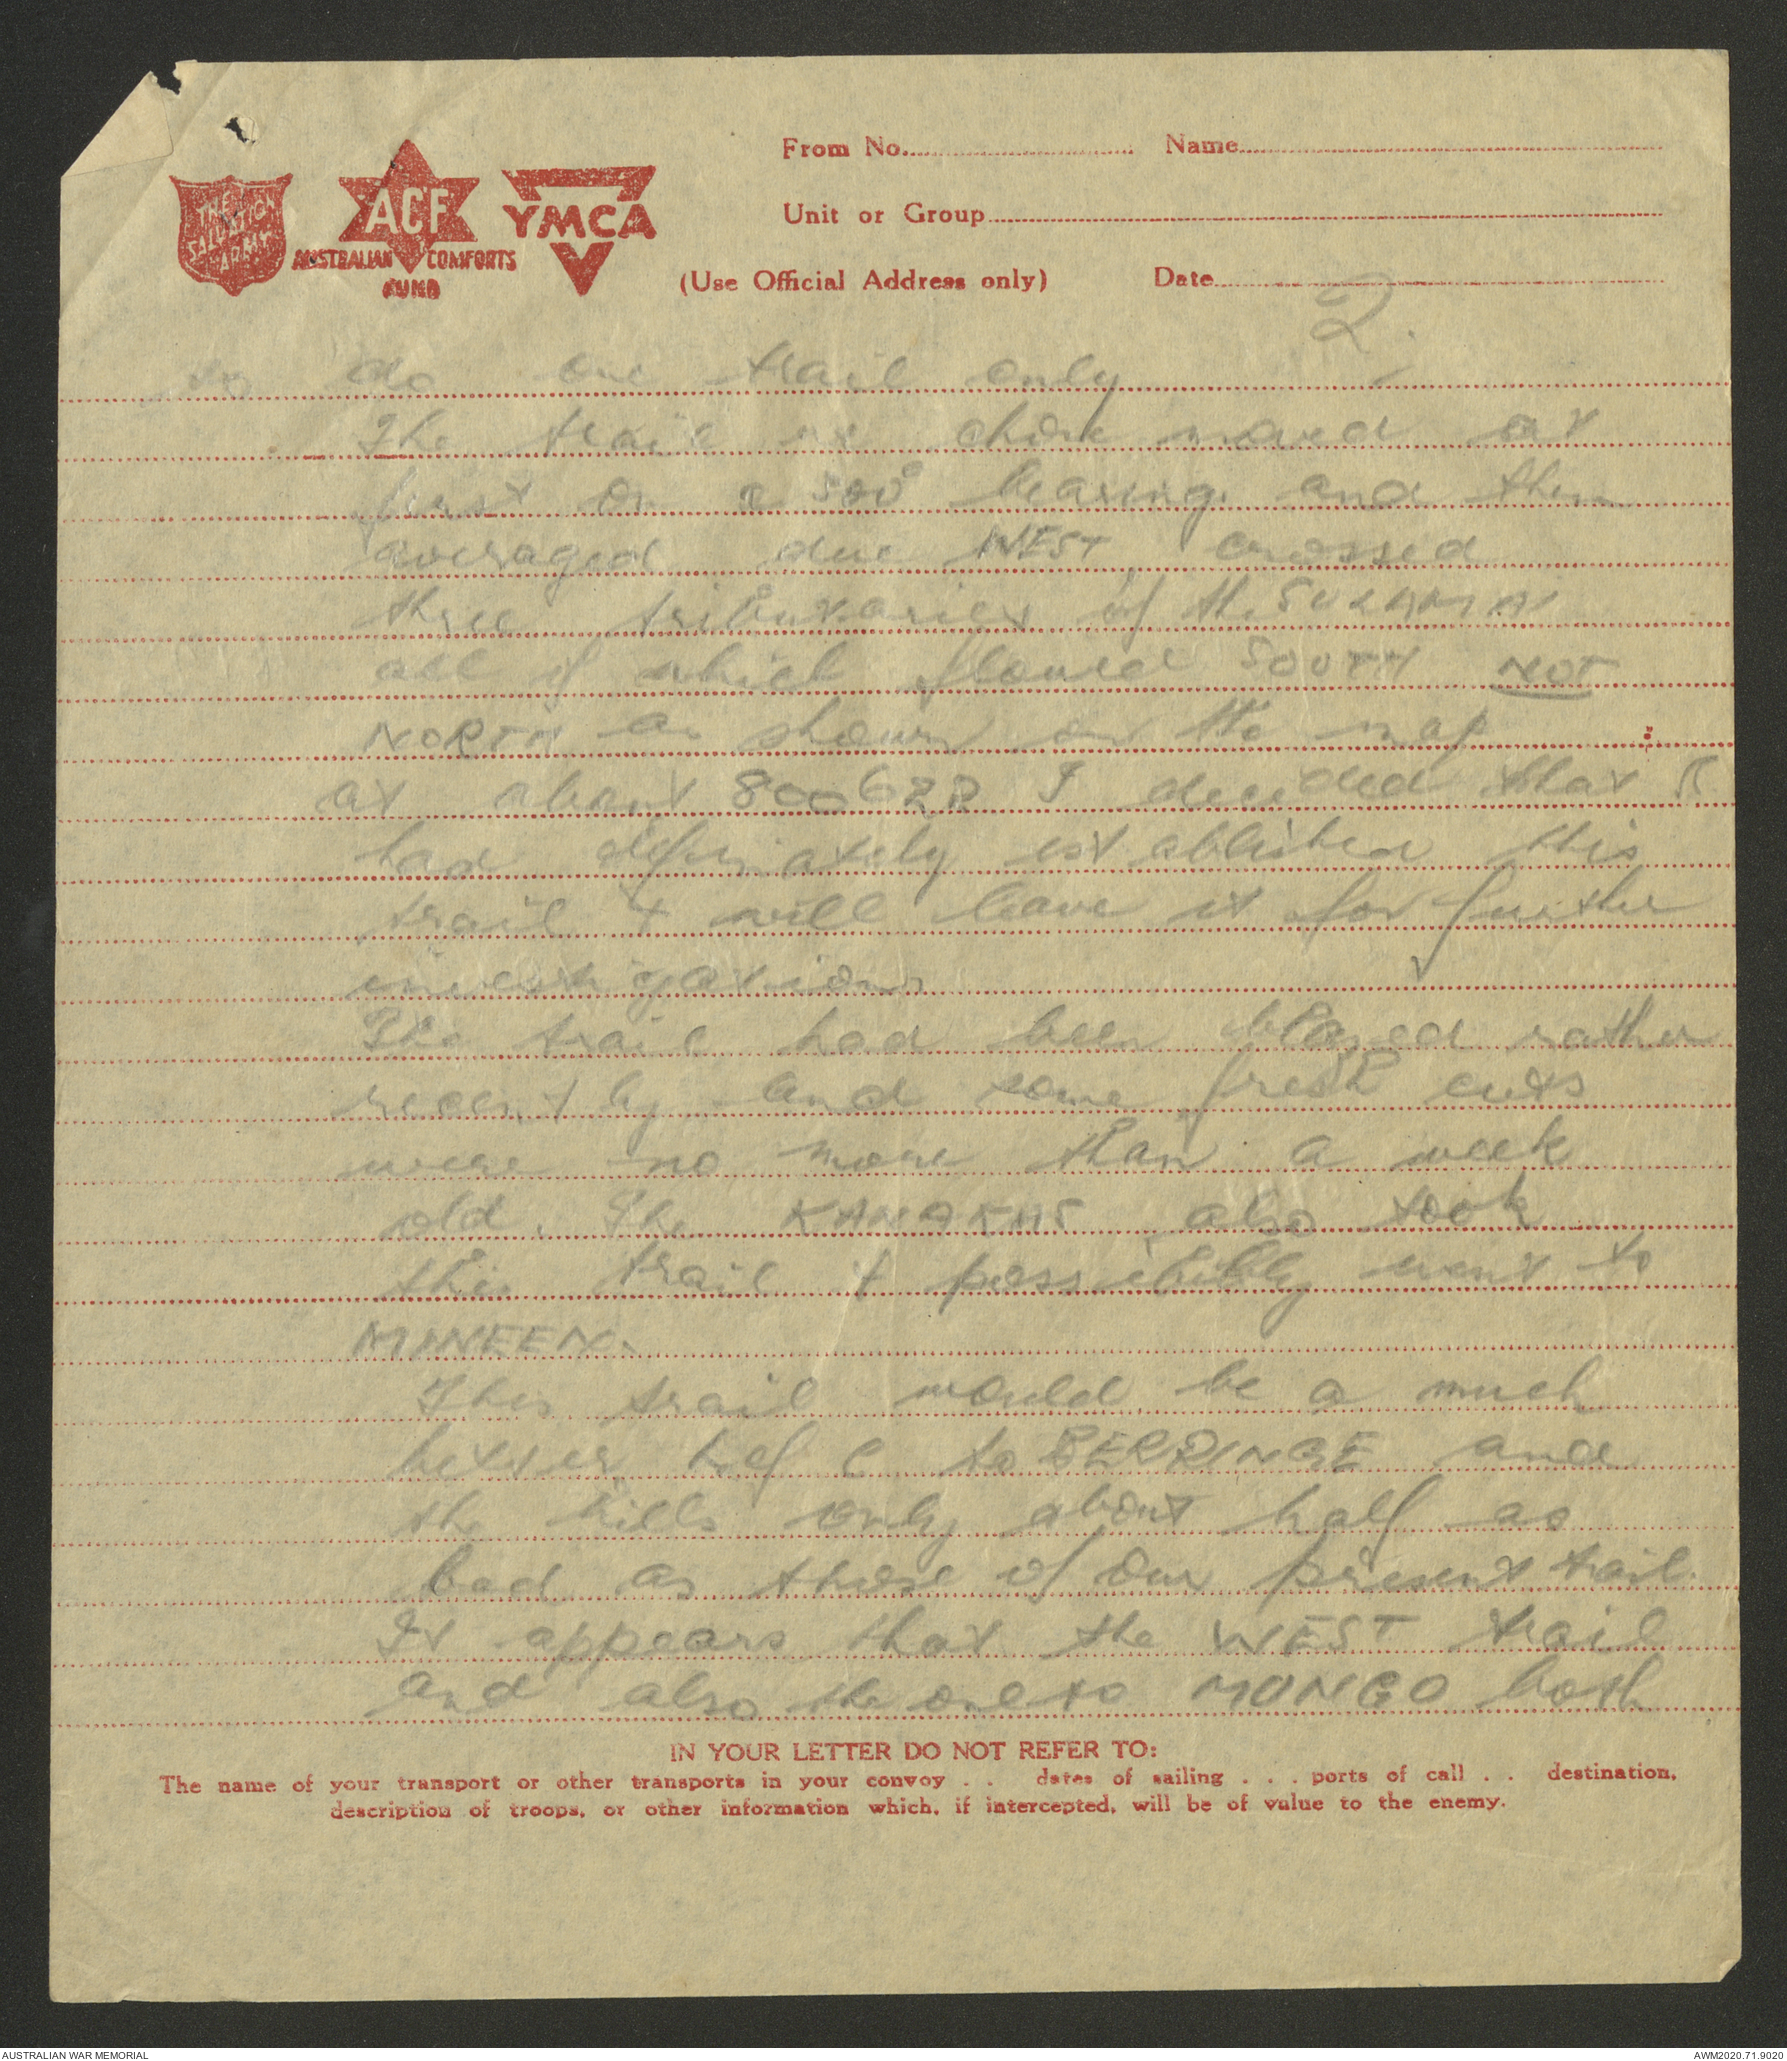 From No. Name
THE SALVATION ARMY
ACF
YMCA
Unit or Group
AUSTRALIAN COMFORTS
FUND
(Use Official Address only) Date
2.
do one trail only
The trail we chose moved at
first on a 300° bearing and then
averaged due WEST crossed
three tributaries of the
all of which flowed SOUTH NOT
NORTH as shown on the map
at about 800622 I decided that I
had definately established this
trail & will leave it for further
investigations
The trail had been blazed rather
recently and some fresh cuts
were no more than a week
old. The KANAKAS also took
this trail & possibly went to
MUNEEN.
This trail would be a much
better to BERRINGE and
the hills only about half as
bad as those of our present trail.
It appears that the WEST trail
and also the one to MONGO both
IN YOUR LETTER DO NOT REFER TO:
The name of your transport or other transports in your convoy . . dates of sailing . . . ports of call . . destination,
description of troops, or other information which, if intercepted, will be of value to the enemy.
AUSTRALIAN WAR MEMORIAL AWM2020.71.9020